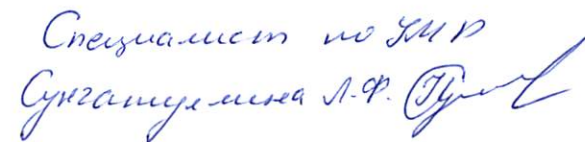 Специалист по УМР
Сунгатуллина Л.Ф.